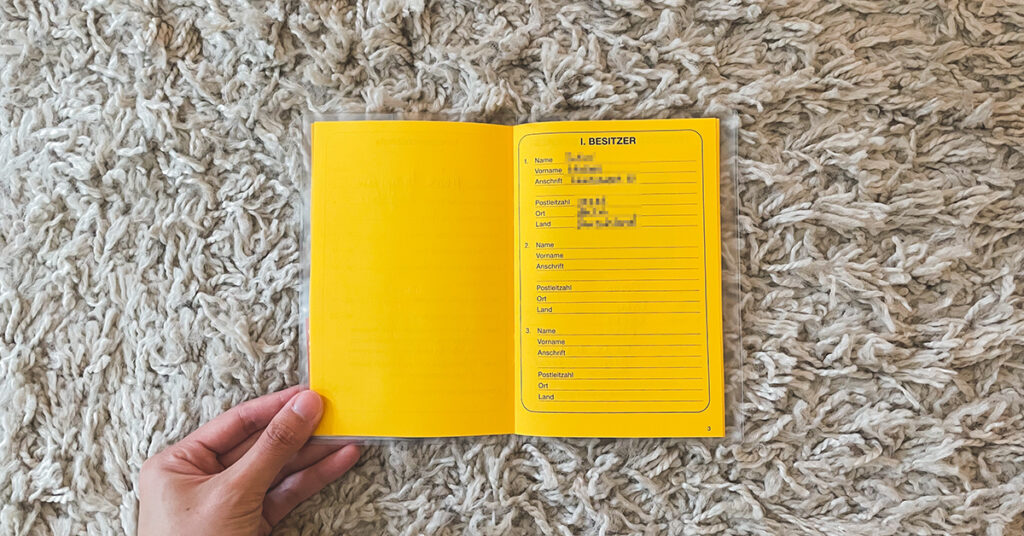 I. BESITZER
1. Name
Vorname
Anschrift
Postleitzahl
Ort
Land
2. Name
Vorname
Anschrift
Postleitzahl
Ort
Land
3. Name
Vorname
Anschrift
Postleitzahl
Ort
Land
3